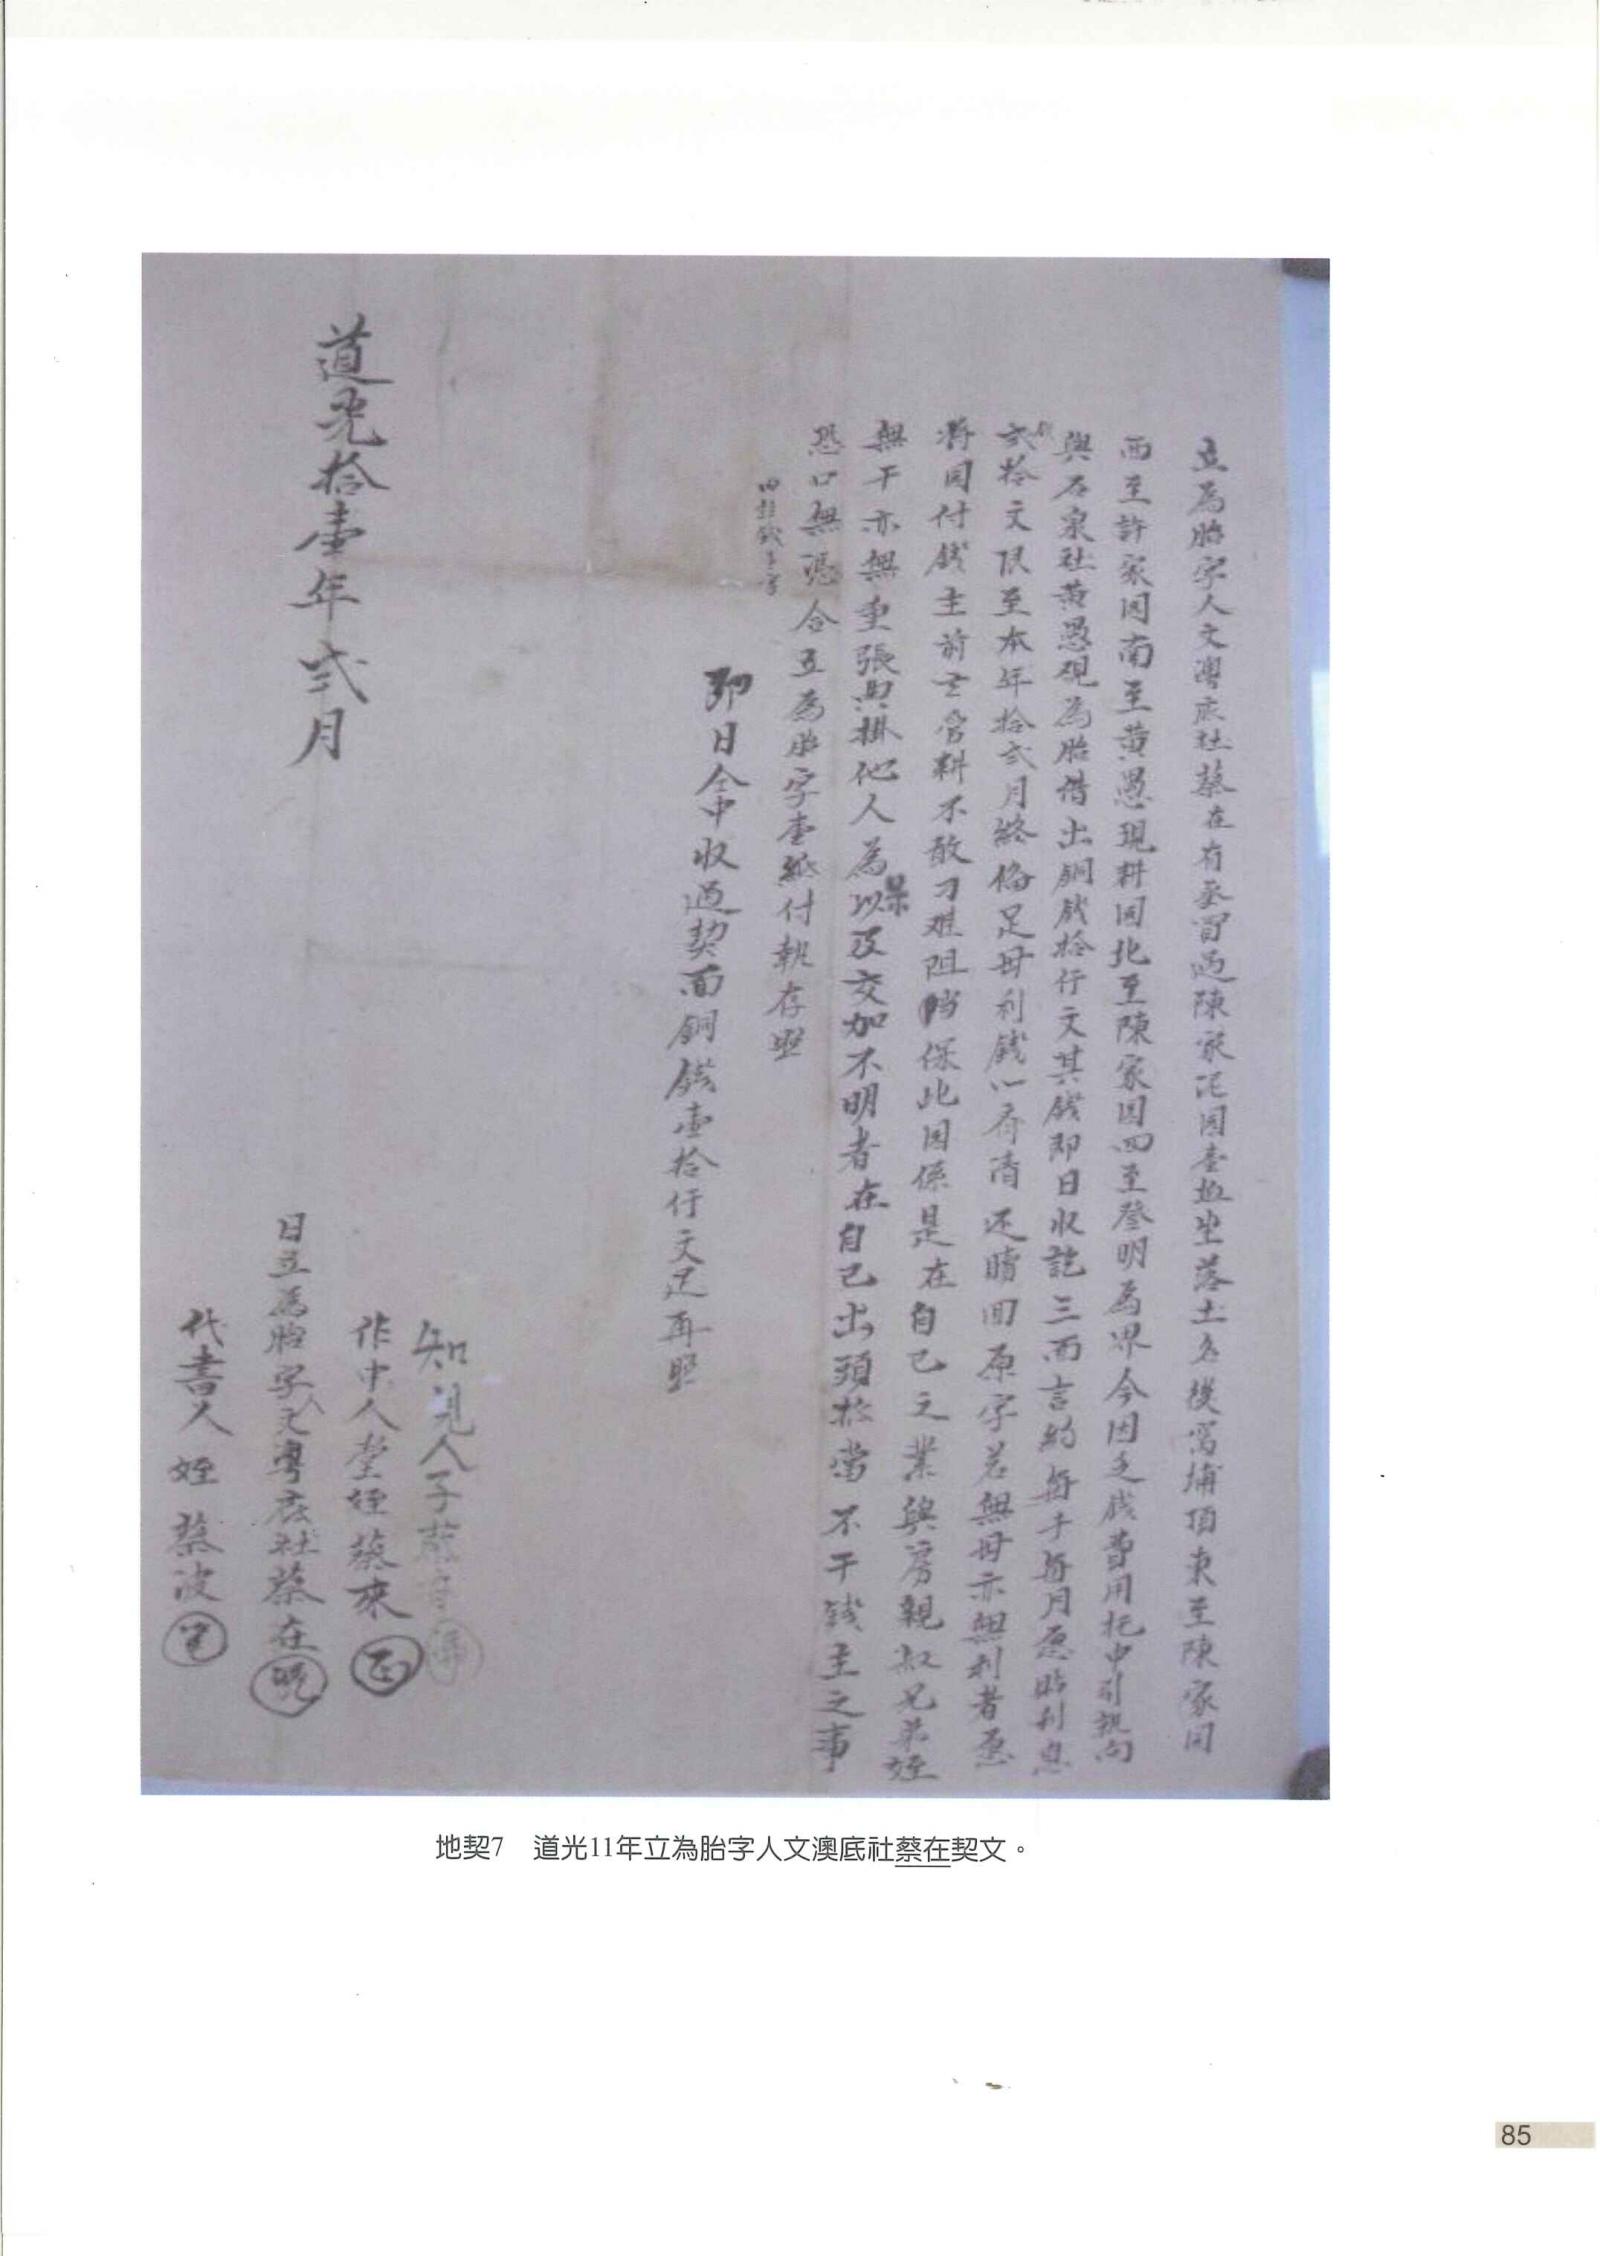 立為胎字人文澳底社蔡在有承買過陳家沉园壹坵坐落土名後窟埔頂東至陳家园
西至許家园南至黃愚現耕园北至陳家园四至登明為界今因乏錢費用托中引就向
與石泉社黃愚硯為胎借出銅錢拾仟文其錢即日收訖三面言約每千每月愿貼利息
錢弍拾文限至本年拾弍月終備足母利錢一齊清还贖回原字若無母亦無利者愿
將园付錢主前去管耕不敢刁难阻擋保此园係是在自己之業與房親叔兄弟姪
無干亦無重張典掛他人為以及交加不明者在自己出頭抵當不干錢主之事
恐口無憑合立為胎字壹紙付執存照
即日仝中收過契面銅錢壹拾仟文足再照
知見人子
作中人堂姪蔡來
道光拾壹年弍月
日立為胎字人文粵底社蔡在
代書人 姪 蔡波
地契7 道光11年立為胎字人文澳底社蔡在契文。
85